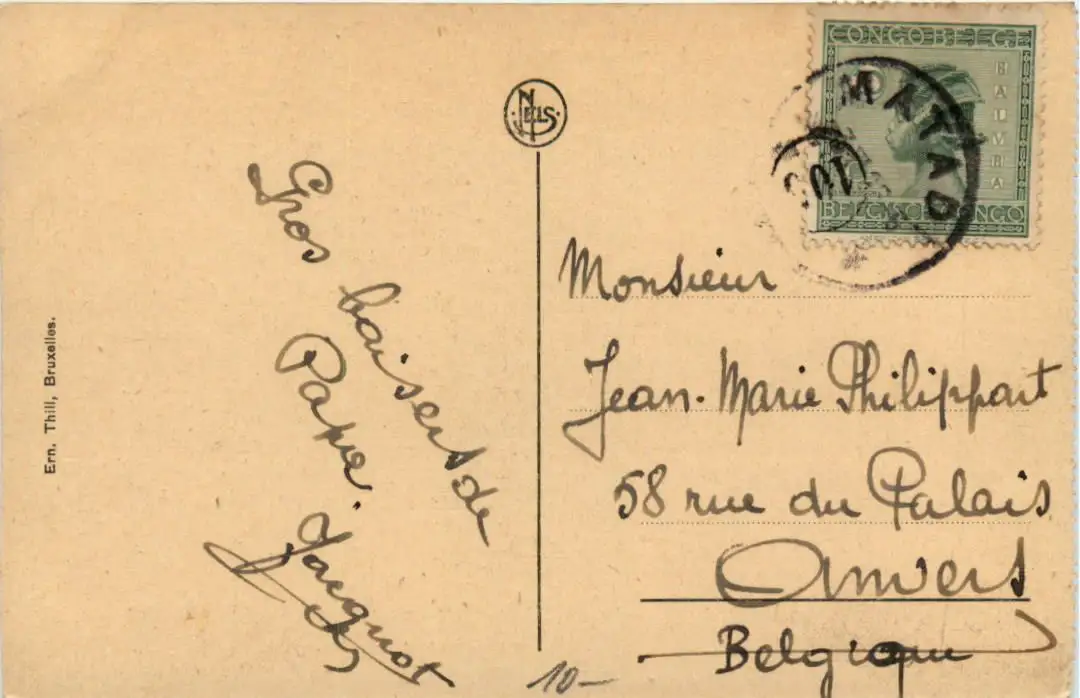 Ern. Thill, Bruxelles.
NELS
Gros baisers de
Papa.
Jacquot
CONGO BELGE
BELGISCH CONGO
MATAD
10
Monsieur
Jean-Marie Philippart
58 rue du Palais
Anvers
Belgique
10-